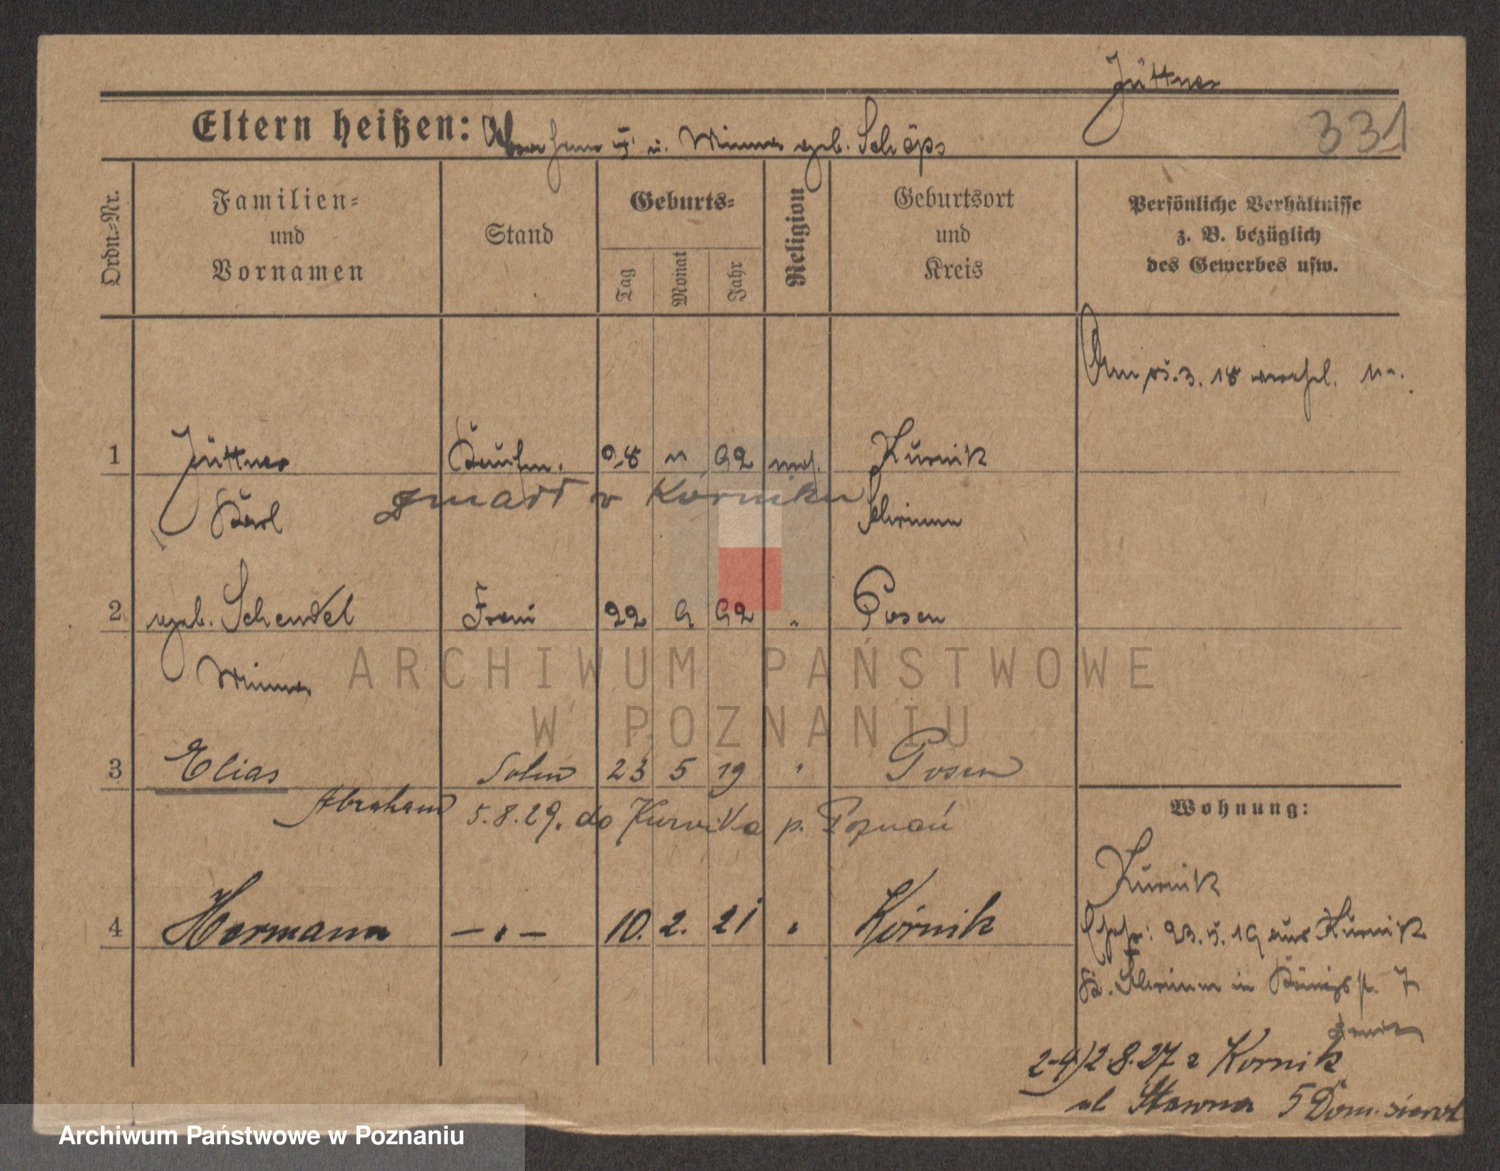 Jüttner
331
Eltern heißen: Abraham J. u. Minna geb. Schöps
Ordn.-Nr.
Familien-
und
Vornamen
Stand
Geburts-
Tag
Monat
Jahr
Religion
Geburtsort
und
Kreis
Persönliche Verhältnisse
z. B. bezüglich
des Gewerbes usw.
Am 3. 18
1 Jüttner Kaufm. 28 92 mos. Kurnik
Karl zmarł w Kórniku Schrimm
2 geb. Schendel Frau 22 9 92 " Posen
Minna
ARCHIWUM PAŃSTWOWE
W POZNANIU
3 Elias Sohn 23 5 19 " Posen
Abraham 5.8.29. do Kurnika p. Poznań
Wohnung:
Kurnik
4 Hermann — " — 10. 2. 21 " Kórnik
23.5.19 aus Kurnik
K. Schrimm in Königspl. 7
2-4) 2 8.27 z Kornik
ul Stawna 5
Archiwum Państwowe w Poznaniu